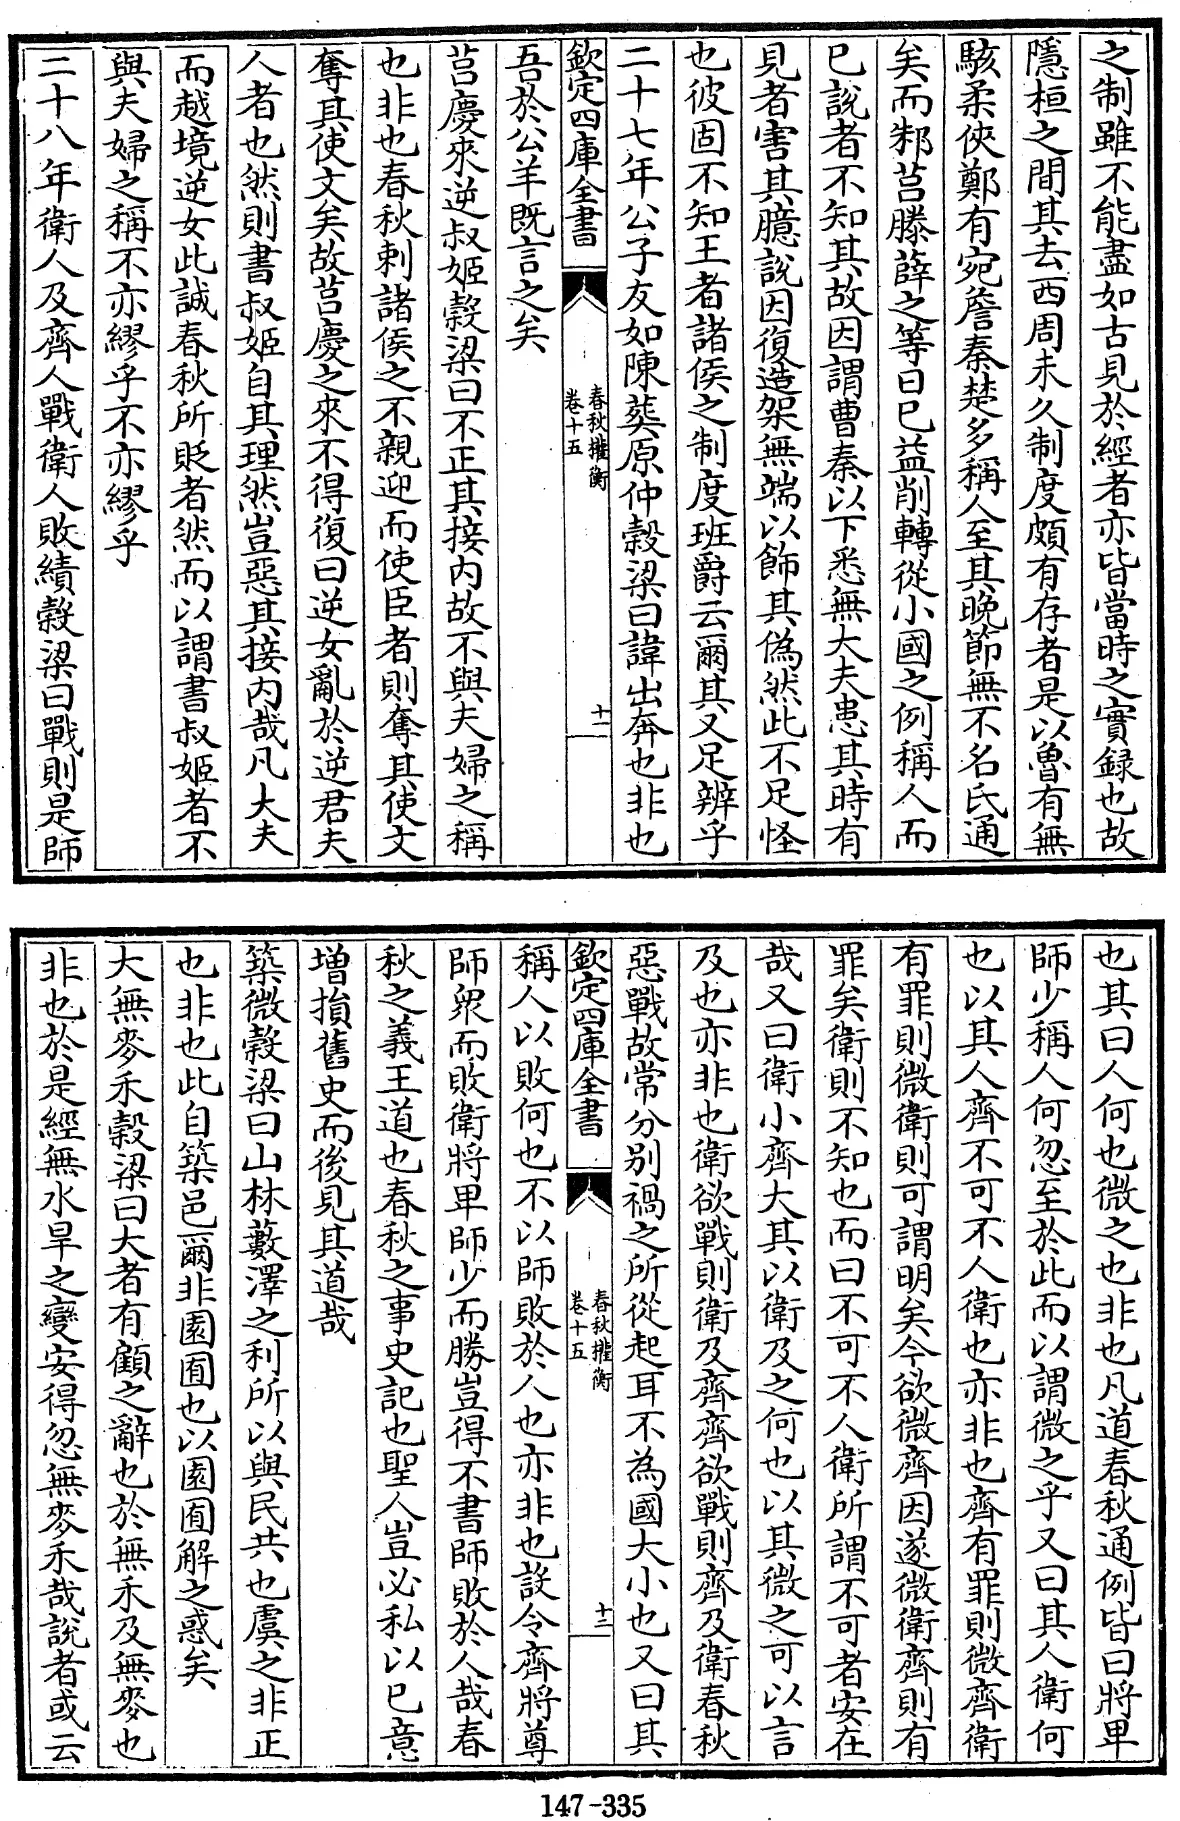 之制雖不能盡如古見於經者亦皆當時之實録也故
隱桓之間其去西周未久制度頗有存者是以魯有無
駭柔俠鄭有宛詹秦楚多稱人至其晚節無不名氏通
矣而邾莒滕薛之等日已益削轉從小國之例稱人而
已說者不知其故因謂曹秦以下悉無大夫患其時有
見者害其臆說因復造架無端以飾其偽然此不足怪
也彼固不知王者諸侯之制度班爵云爾其又足辨乎
二十七年公子友如陳葬原仲穀梁曰諱出奔也非也
欽定四庫全書
春秋權衡
卷十五
十一
吾於公羊既言之矣
莒慶來逆叔姬穀梁曰不正其接内故不與夫婦之稱
也非也春秋刺諸侯之不親迎而使臣者則奪其使文
奪其使文矣故莒慶之來不得復曰逆女亂於逆君夫
人者也然則書叔姬自其理然豈惡其接内哉凡大夫
而越境逆女此誠春秋所貶者然而以謂書叔姬者不
與夫婦之稱不亦繆乎不亦繆乎
二十八年衛人及齊人戰衛人敗績穀梁曰戰則是師
也其曰人何也微之也非也凡道春秋通例皆曰將卑
師少稱人何忽至於此而以謂微之乎又曰其人衛何
也以其人齊不可不人衛也亦非也齊有罪則微齊衛
有罪則微衛則可謂明矣今欲微齊因遂微衛齊則有
罪矣衛則不知也而曰不可不人衛所謂不可者安在
哉又曰衛小齊大其以衛及之何也以其微之可以言
及也亦非也衛欲戰則衛及齊齊欲戰則齊及衛春秋
惡戰故常分别禍之所從起耳不為國大小也又曰其
欽定四庫全書
春秋權衡
卷十五
十二
稱人以敗何也不以師敗於人也亦非也設令齊將尊
師衆而敗衛將卑師少而勝豈得不書師敗於人哉春
秋之義王道也春秋之事史記也聖人豈必私以已意
增損舊史而後見其道哉
築微穀梁曰山林藪澤之利所以與民共也虞之非正
也非也此自築邑爾非園囿也以園囿解之惑矣
大無麥禾穀梁曰大者有顧之辭也於無禾及無麥也
非也於是經無水旱之變安得忽無麥禾哉說者或云
147-335